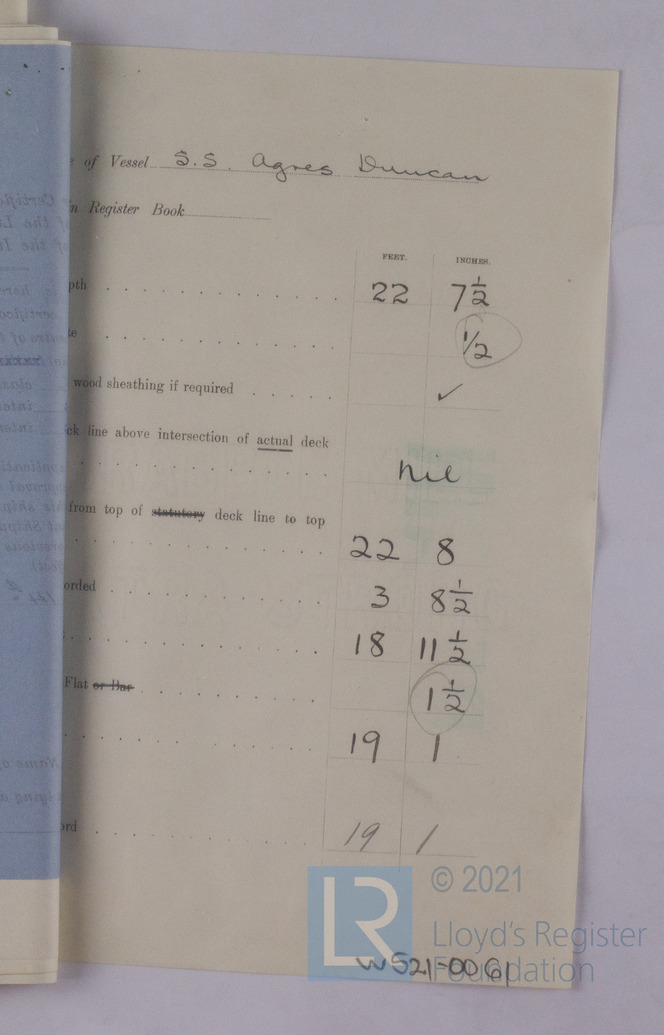 of Vessel S.S. Agnes Duncan
n Register Book
FEET. INCHES.
pth 22 7½
te ½
wood sheathing if required ✓
ck line above intersection of actual deck
nil
from top of statutory deck line to top
22 8
orded 3 8½
18 11½
Flat or Bar 1½
19 1
ord 19 1
© 2021
LR Lloyd's Register
Foundation
W521-0061